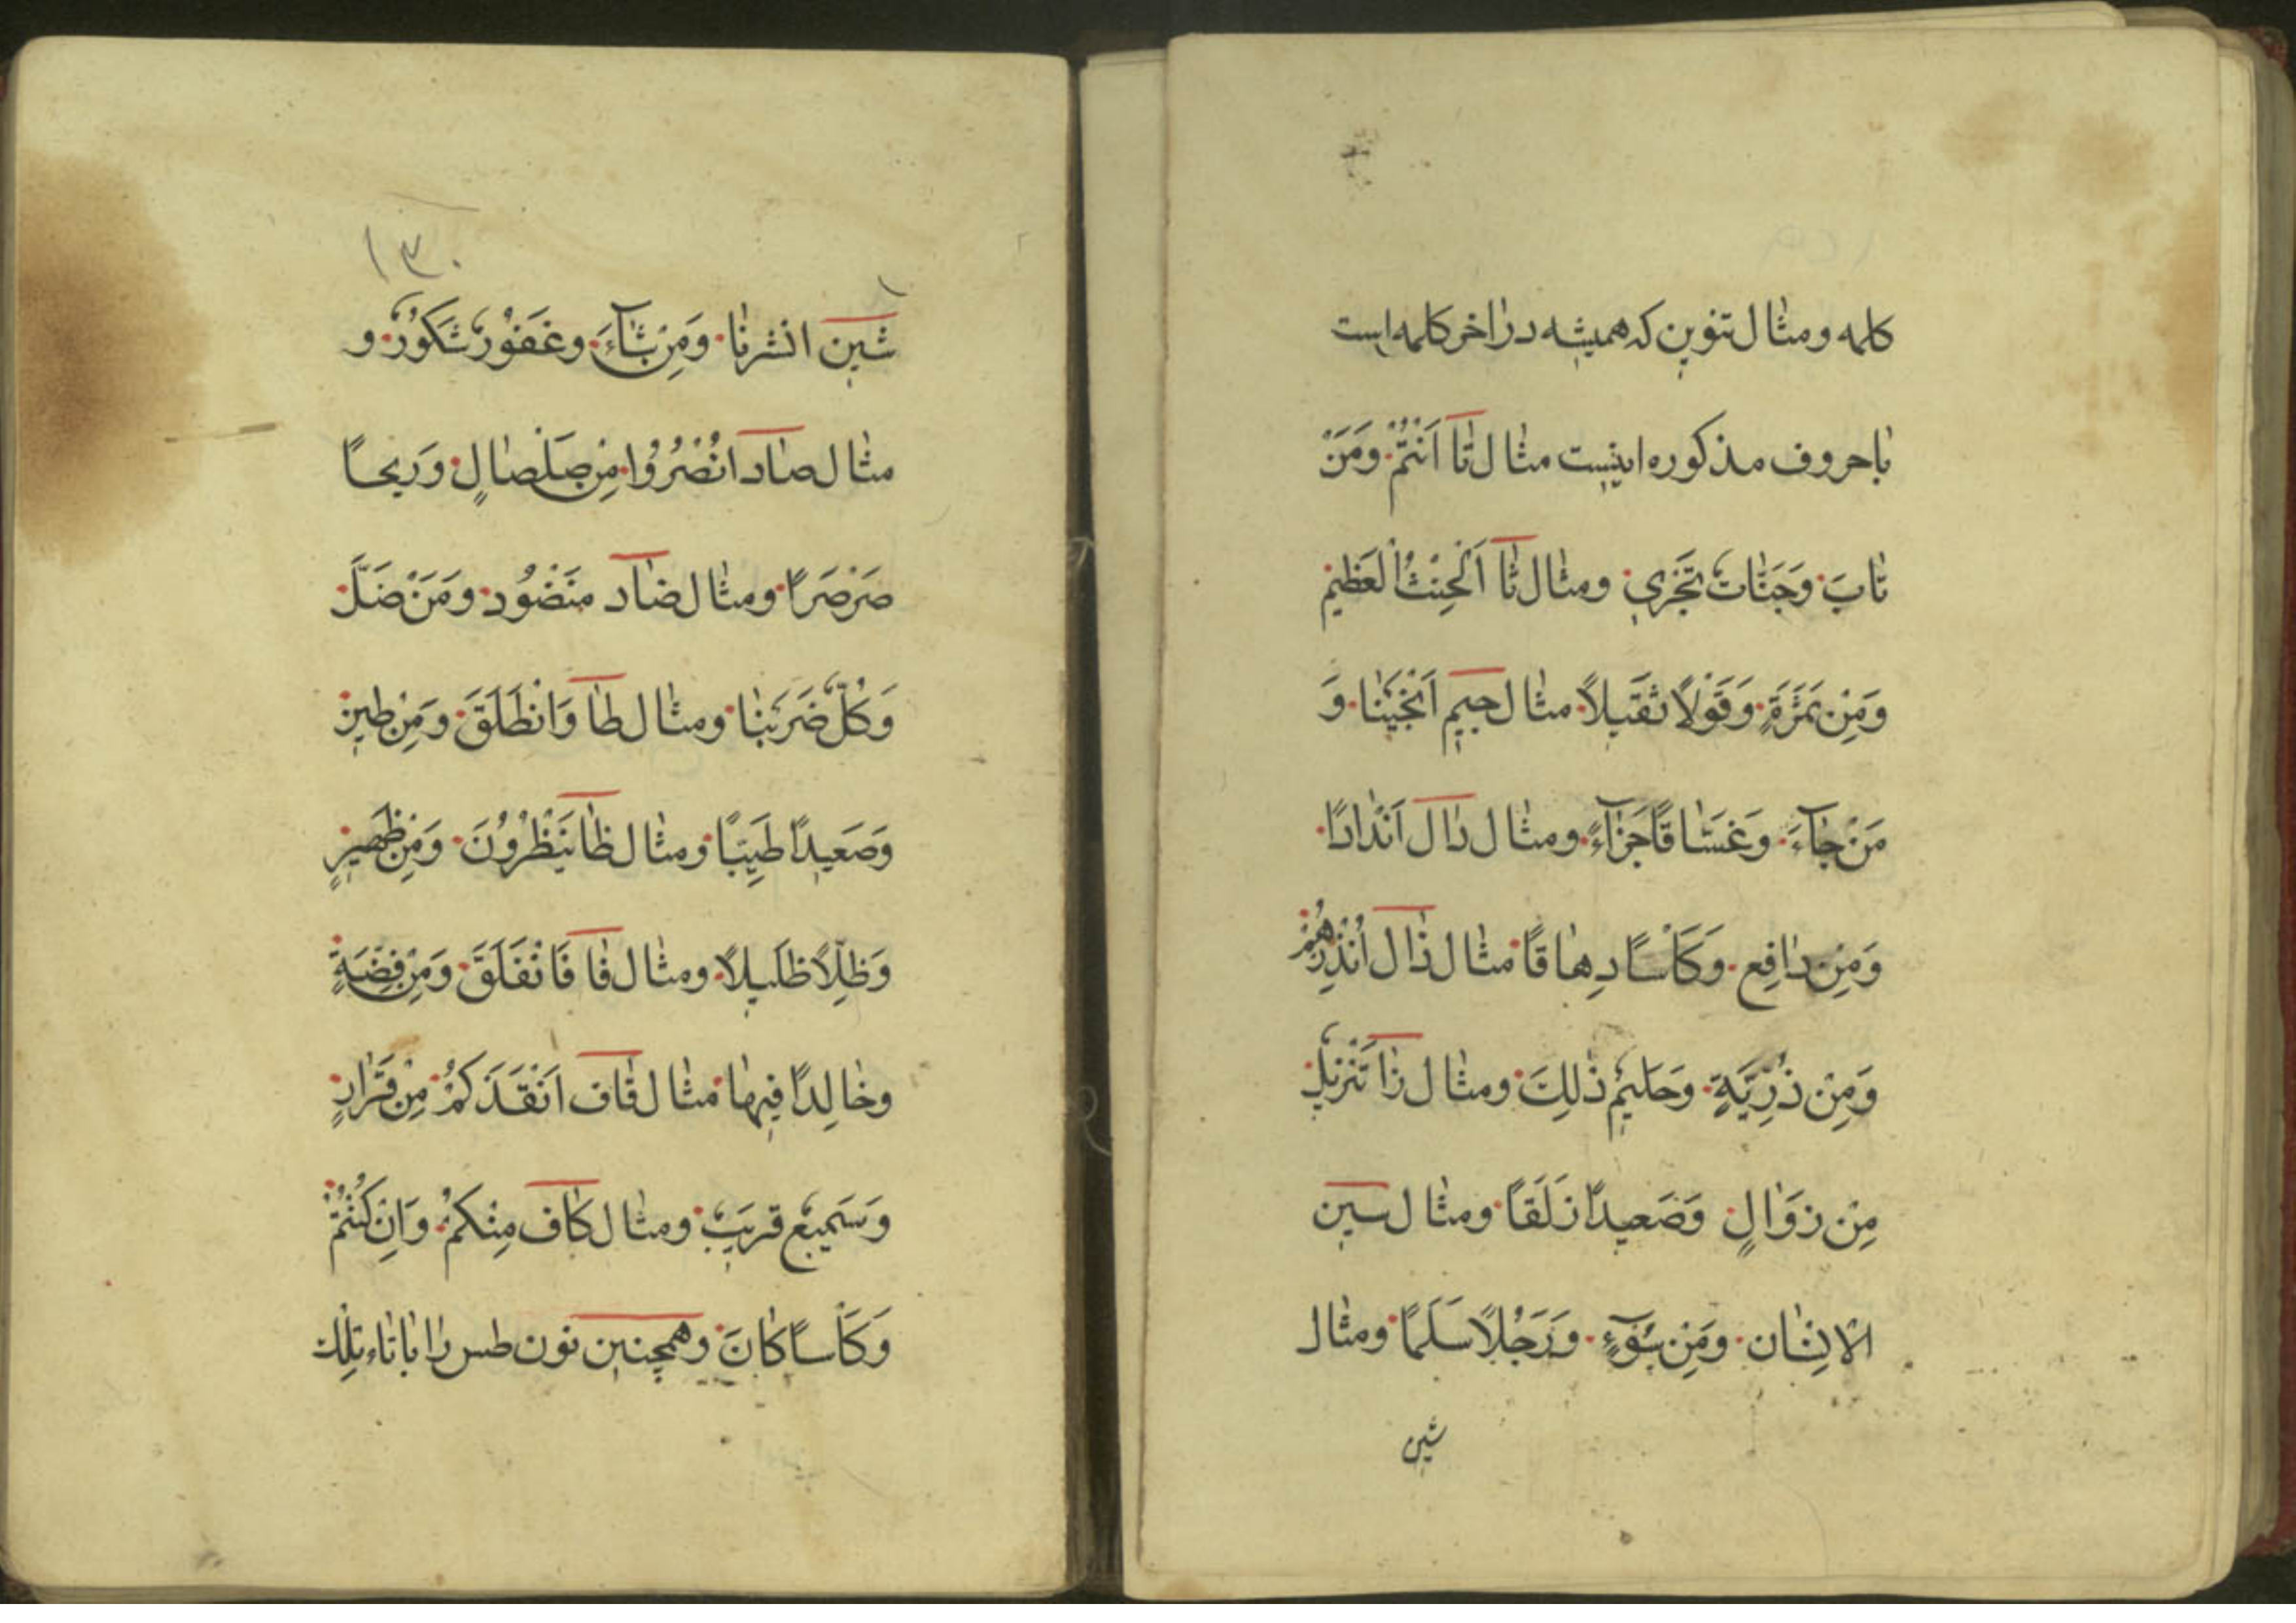 كلمه ومثال تنوین که همیشه در آخر کلمه است
با حروف مذکوره اینست مثال تا اَنْتُمْ وَمَنْ
تابَ وَجَنّاتٌ تَجْرِي ومثال ثا اَلْحِنْثِ الْعَظيم
وَمِنْ ثَمَرَةٍ وَقَوْلاً ثَقيلاً مثال جیم اَنْجَيْنا وَ
مَنْ جآءَ وَغَسّاقًا جَزآءً ومثال دال اَنْدادًا
وَمِنْ دافِعٍ وَكَأْسًا دِهاقًا مثال ذال اَنْذِرْهُمْ
وَمِنْ ذُرِّيَّةٍ وَحَليمٌ ذٰلِكَ ومثال زا تَنْزيلٌ
مِنْ زَوالٍ وَصَعيدًا زَلَقًا ومثال سین
الانسان وَمِنْ سُوٓءٍ وَرَجُلاً سَلَمًا ومثال
شین
١٣٠
شین انشرنا وَمِنْ شآءَ وغَفُورٌ شَكُورٌ و
مثال صاد انْصُرُوا مِنْ صَلْصالٍ وَريحًا
صَرْصَرًا ومثال ضاد مَنْضُود وَمَنْ ضَلَّ
وَكُلاًّ ضَرَبْنا ومثال طا وَانْطَلَقَ وَمِنْ طينٍ
وَصَعيدًا طَيِّبًا ومثال ظا يَنْظُرُونَ وَمِنْ ظَهيرٍ
وَظِلاًّ ظَليلاً ومثال فا فَانْفَلَقَ وَمِنْ فِضَّةٍ
وخالِدًا فيها مثال قاف اَنْقَذَكُمْ مِنْ قَرارٍ
وَسَميعٌ قَريبٌ ومثال کاف مِنْكُمْ وَاِنْ كُنْتُمْ
وَكَأْسًا كانَ وهمچنین نون طس را با تاء تِلْكَ